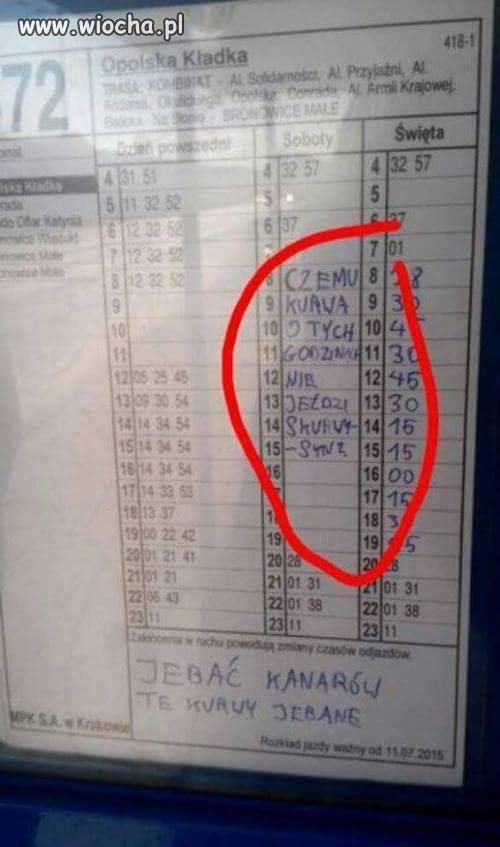 www.wiocha.pl
418-1
72 Opolska Kładka
TRASA: KOMBINAT - Al. Solidarności, Al. Przyjaźni, Al.
Andersa, Okulickiego, Opolska, Conrada, Al. Armii Krajowej,
Balicka, Na Błonie - BRONOWICE MAŁE
Dzień powszedni Soboty Święta
4 31 51 4 32 57 4 32 57
5 11 32 52 5 5
6 12 32 52 6 37 6 37
7 12 32 52 7 01
8 12 32 52 8 CZEMU 8
9 9 KURWA 9
10 10 O TYCH 10
11 11 11 30
12 05 25 45 12 NIE 12 45
13 09 30 54 13 JEŹDZI 13 30
14 14 34 54 14 SKURWY- 14 15
15 14 34 54 15 -SYNY 15 15
16 14 34 54 16 16 00
17 14 33 53 17 15
18 13 37 18
19 00 22 42 19 19
20 01 21 41 20 28 20
21 01 21 21 01 31 21 01 31
22 06 43 22 01 38 22 01 38
23 11 23 11 23 11
Zakłócenia w ruchu powodują zmiany czasów odjazdów.
JEBAĆ KANARÓW
TE KURWY JEBANE
MPK S.A. w Krakowie
Rozkład jazdy ważny od 11.07.2015